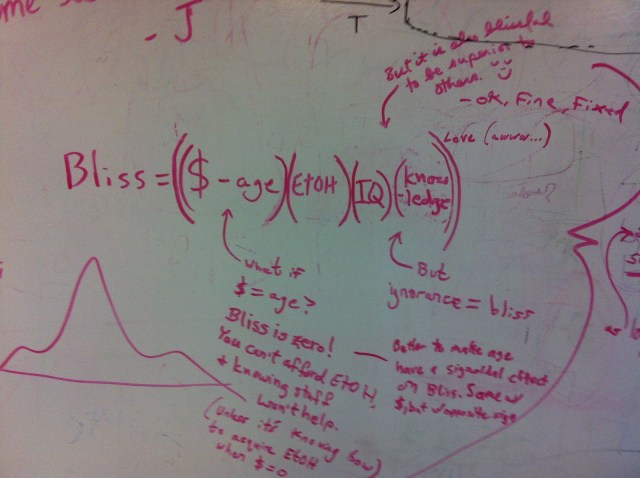 me
- J
T
But it is also blissful
to be superior to
others.
- OK, Fine, Fixed
Love (awww...)
Bliss = (($ - age)(EtOH)(IQ)(know
-ledge))
what if
$ = age?
Bliss is zero!
You can't afford EtOH,
+ knowing stuff
won't help.
(Unless it's knowing how)
to acquire EtOH
when $=0
But
ignorance = bliss
Better to make age
have a sigmoidal effect
on Bliss. Same w
$, but w/opposite sign